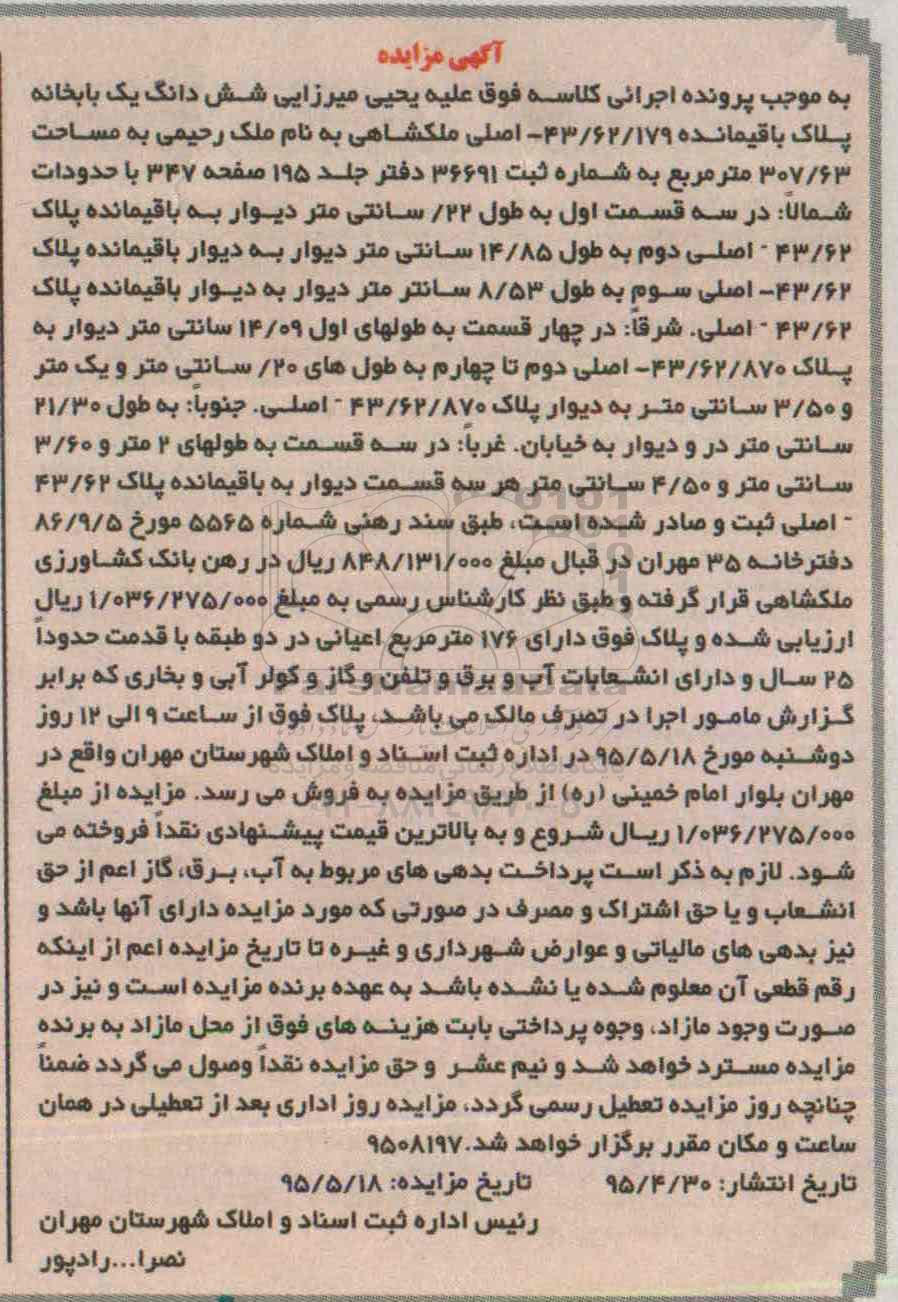 آگهی مزایده
به موجب پرونده اجرائی کلاسه فوق علیه یحیی میرزایی شش دانگ یک بابخانه
پلاک باقیمانده ۴۳/۶۲/۱۷۹- اصلی ملکشاهی به نام ملک رحیمی به مساحت
۳۰۷/۶۳ مترمربع به شماره ثبت ۳۶۶۹۱ دفتر جلد ۱۹۵ صفحه ۳۴۷ با حدودات
شمالاً: در سه قسمت اول به طول ۲۲/ سانتی متر دیوار به باقیمانده پلاک
۴۳/۶۲ - اصلی دوم به طول ۱۴/۸۵ سانتی متر دیوار به دیوار باقیمانده پلاک
۴۳/۶۲- اصلی سوم به طول ۸/۵۳ سانتر متر دیوار به دیوار باقیمانده پلاک
۴۳/۶۲ - اصلی. شرقاً: در چهار قسمت به طولهای اول ۱۴/۰۹ سانتی متر دیوار به
پلاک ۴۳/۶۲/۸۷۰- اصلی دوم تا چهارم به طول های ۲۰/ سانتی متر و یک متر
و ۳/۵۰ سانتی متر به دیوار پلاک ۴۳/۶۲/۸۷۰ - اصلی. جنوباً: به طول ۲۱/۳۰
سانتی متر در و دیوار به خیابان. غرباً: در سه قسمت به طولهای ۲ متر و ۳/۶۰
سانتی متر و ۴/۵۰ سانتی متر هر سه قسمت دیوار به باقیمانده پلاک ۴۳/۶۲
- اصلی ثبت و صادر شده است، طبق سند رهنی شماره ۵۵۶۵ مورخ ۸۶/۹/۵
دفترخانه ۳۵ مهران در قبال مبلغ ۸۴۸/۱۳۱/۰۰۰ ریال در رهن بانک کشاورزی
ملکشاهی قرار گرفته و طبق نظر کارشناس رسمی به مبلغ ۱/۰۳۶/۲۷۵/۰۰۰ ریال
ارزیابی شده و پلاک فوق دارای ۱۷۶ مترمربع اعیانی در دو طبقه با قدمت حدوداً
۲۵ سال و دارای انشعابات آب و برق و تلفن و گاز و کولر آبی و بخاری که برابر
گزارش مامور اجرا در تصرف مالک می باشد، پلاک فوق از ساعت ۹ الی ۱۲ روز
دوشنبه مورخ ۹۵/۵/۱۸ در اداره ثبت اسناد و املاک شهرستان مهران واقع در
مهران بلوار امام خمینی (ره) از طریق مزایده به فروش می رسد. مزایده از مبلغ
۱/۰۳۶/۲۷۵/۰۰۰ ریال شروع و به بالاترین قیمت پیشنهادی نقداً فروخته می
شود. لازم به ذکر است پرداخت بدهی های مربوط به آب، برق، گاز اعم از حق
انشعاب و یا حق اشتراک و مصرف در صورتی که مورد مزایده دارای آنها باشد و
نیز بدهی های مالیاتی و عوارض شهرداری و غیره تا تاریخ مزایده اعم از اینکه
رقم قطعی آن معلوم شده یا نشده باشد به عهده برنده مزایده است و نیز در
صورت وجود مازاد، وجوه پرداختی بابت هزینه های فوق از محل مازاد به برنده
مزایده مسترد خواهد شد و نیم عشر و حق مزایده نقداً وصول می گردد ضمناً
چنانچه روز مزایده تعطیل رسمی گردد، مزایده روز اداری بعد از تعطیلی در همان
ساعت و مکان مقرر برگزار خواهد شد.۹۵۰۸۱۹۷
تاریخ انتشار: ۹۵/۴/۳۰ تاریخ مزایده: ۹۵/۵/۱۸
رئیس اداره ثبت اسناد و املاک شهرستان مهران
نصرا...رادپور